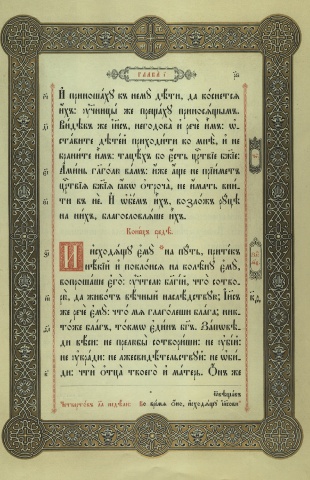 ГЛАВА І
И҆ приношахꙋ къ немꙋ дѣти, да коснетсѧ
и҆хъ: ᲂу҆ченицы же прещахꙋ приносѧщымъ.
Видѣвъ же і҆и҃съ, негодова и҆ рече и҆мъ: ѡ҆-
ставите дѣтей приходити ко мнѣ, и҆ не
браните и҆мъ: тацѣхъ бо є҆сть црⷭ҇твїе бж҃їе:
Аминь гл҃голю вамъ: и҆же а҆ще не прїиметъ
црⷭ҇твїѧ бж҃їѧ ꙗ҆кѡ ѻ҆троча, не имать вни-
ти въ не. И҆ ѡ҆б̾емъ и҆хъ, возложь рꙋцѣ
на нихъ, благословлѧше и҆хъ.
Конецъ средѣ.
И҆сходѧщꙋ є҆мꙋ на пꙋть, притекъ
нѣкїй и҆ поклонсѧ на колѣнꙋ є҆мꙋ,
вопрошаше є҆го: ᲂу҆чителю благїй, что сотво-
рю, да животъ вѣчный наслѣдствꙋю; І҆и҃съ
же рече є҆мꙋ: что мѧ глаголеши блага; ник-
тоже благъ, токмѡ є҆динъ бг҃ъ. Заповѣ-
ди вѣси: не прелюбы сотвориши: не ᲂу҆бїй:
не ᲂу҆кради: не лжесвидѣтельствꙋй: не ѡ҆би-
ди: чти ѻ҆тца твоего и҆ матерь. Ѻ҆нъ же
ѿвѣщавъ
Четвертокъ
во времѧ ѻ҆но, и҆сходѧщꙋ і҆исови